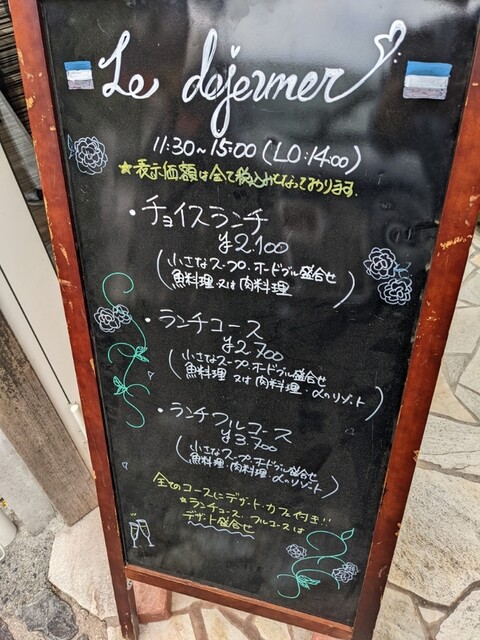 Le dejeuner
11:30~15:00 (LO:14:00)
★表示価額は全て税込みとなっております。
・チョイスランチ
¥2.100
(小さなスープ・オードブル盛合せ
魚料理 又は 肉料理)
・ランチコース
¥2.700
(小さなスープ・オードブル盛合せ
魚料理 又は 肉料理・〆のリゾット)
・ランチフルコース
¥3.700
(小さなスープ・オードブル盛合せ
魚料理・肉料理・〆のリゾット)
全てのコースにデザート・カフェ付き!!
★ランチコース、フルコースは
デザート盛合せ